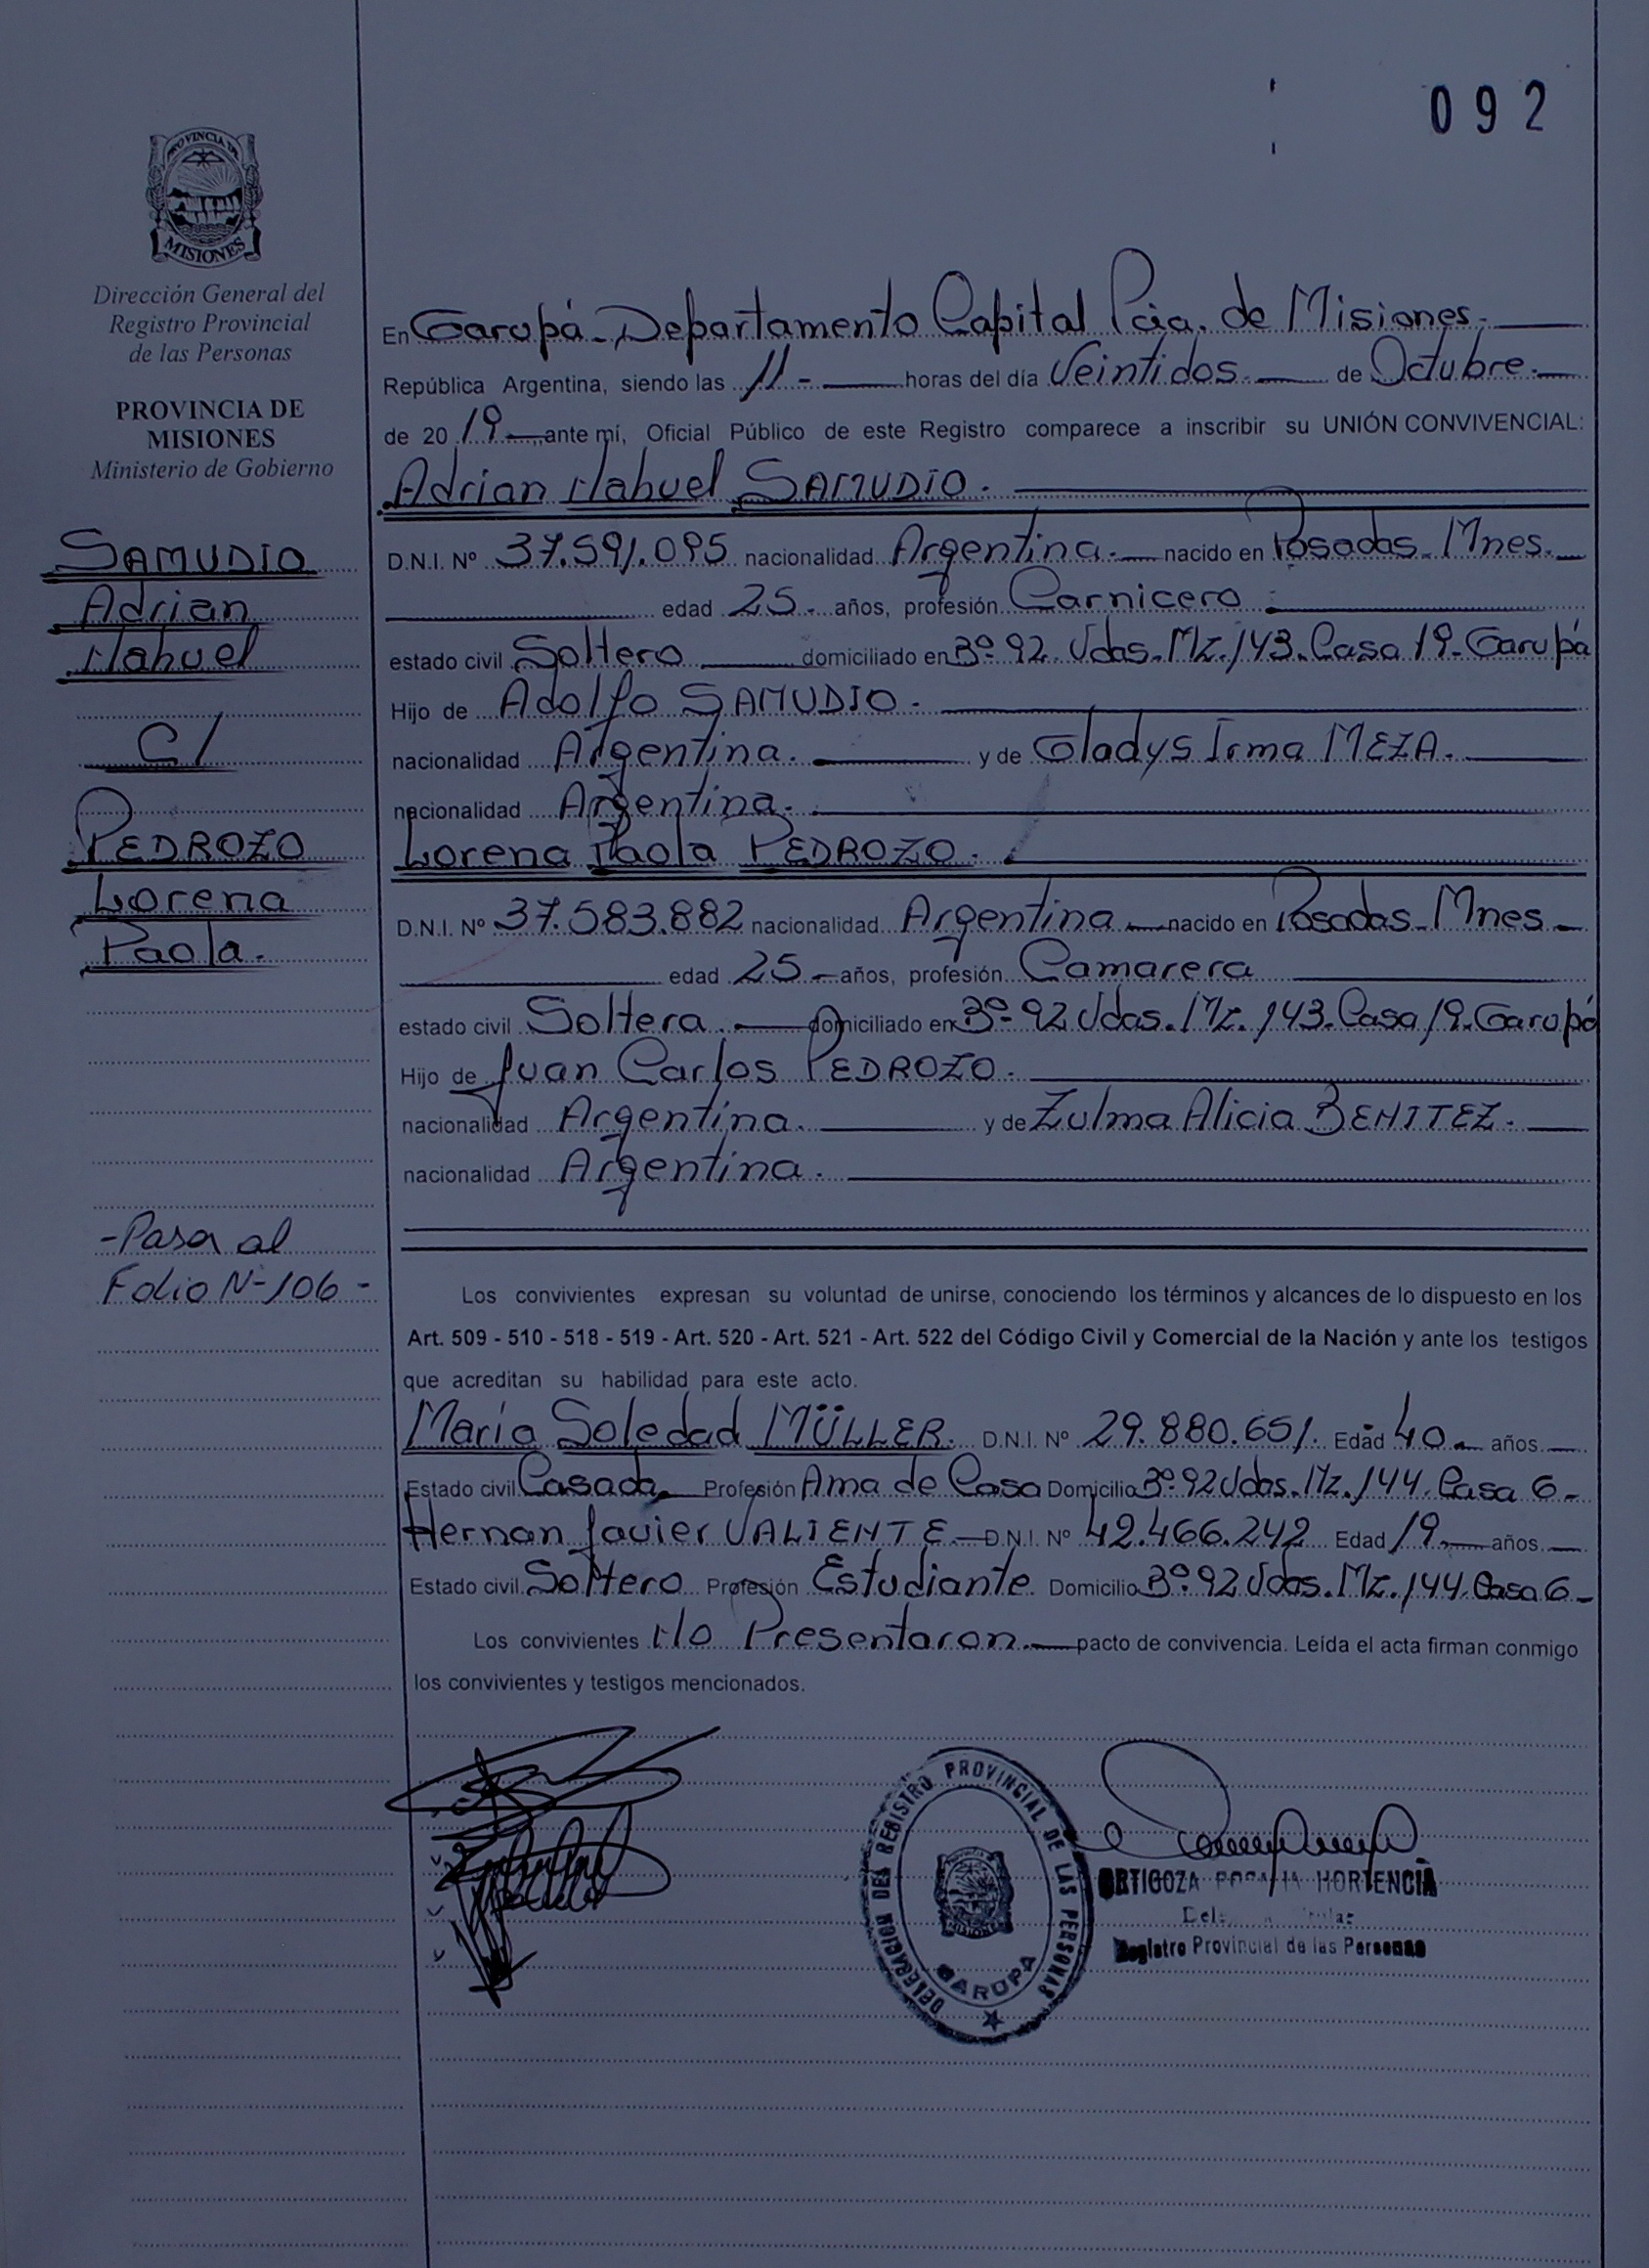 092
PROVINCIA DE
MISIONES
Dirección General del
Registro Provincial
de las Personas
PROVINCIA DE
MISIONES
Ministerio de Gobierno
SAMUDIO
Adrian
Nahuel
C/
PEDROZO
Lorena
Paola.
-Pasa al
Folio N-106-
En Garupá-Departamento Capital Pcia. de Misiones.
República Argentina, siendo las 11- horas del día Veintidos. de Octubre.
de 2019 ante mí, Oficial Público de este Registro comparece a inscribir su UNIÓN CONVIVENCIAL:
Adrian Nahuel SAMUDIO.
D.N.I. Nº 37.591.095 nacionalidad Argentina. nacido en Posadas-Mnes.
edad 25. años, profesión Carnicero
estado civil Soltero domiciliado en Bº-92 Vdas.Mz.143.Casa 19-Garupá
Hijo de Adolfo SAMUDIO.
nacionalidad Argentina. y de Gladys Irma MEZA.
nacionalidad Argentina.
Lorena Paola PEDROZO.
D.N.I. Nº 37.583.882 nacionalidad Argentina nacido en Posadas-Mnes
edad 25- años, profesión Camarera
estado civil Soltera. domiciliado en Bº-92 Vdas.Mz.143.Casa 19.Garupá
Hijo de Juan Carlos PEDROZO.
nacionalidad Argentina. y de Zulma Alicia BENITEZ.
nacionalidad Argentina.
Los convivientes expresan su voluntad de unirse, conociendo los términos y alcances de lo dispuesto en los
Art. 509 - 510 - 518 - 519 - Art. 520 - Art. 521 - Art. 522 del Código Civil y Comercial de la Nación y ante los testigos
que acreditan su habilidad para este acto.
María Soledad MÜLLER. D.N.I. Nº 29.880.651. Edad 40 años.
Estado civil Casada Profesión Ama de Casa Domicilio Bº-92 Vdas.Mz.144.Casa 6-
Hernan Javier VALIENTE D.N.I. Nº 42.466.242 Edad 19. años.
Estado civil Soltero Profesión Estudiante Domicilio Bº-92 Vdas.Mz.144.Casa 6-
Los convivientes No Presentaron. pacto de convivencia. Leída el acta firman conmigo
los convivientes y testigos mencionados.
DELEGACION DEL REGISTRO PROVINCIAL DE LAS PERSONAS
GARUPA
ORTIGOZA HORTENCIA
Registro Provincial de las Personas